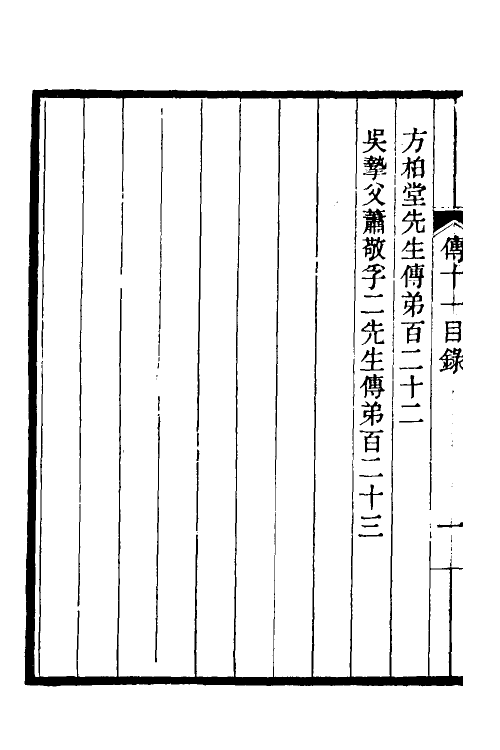 傳十一目錄
一
方柏堂先生傳弟百二十二
吳摯父蕭敬孚二先生傳弟百二十三